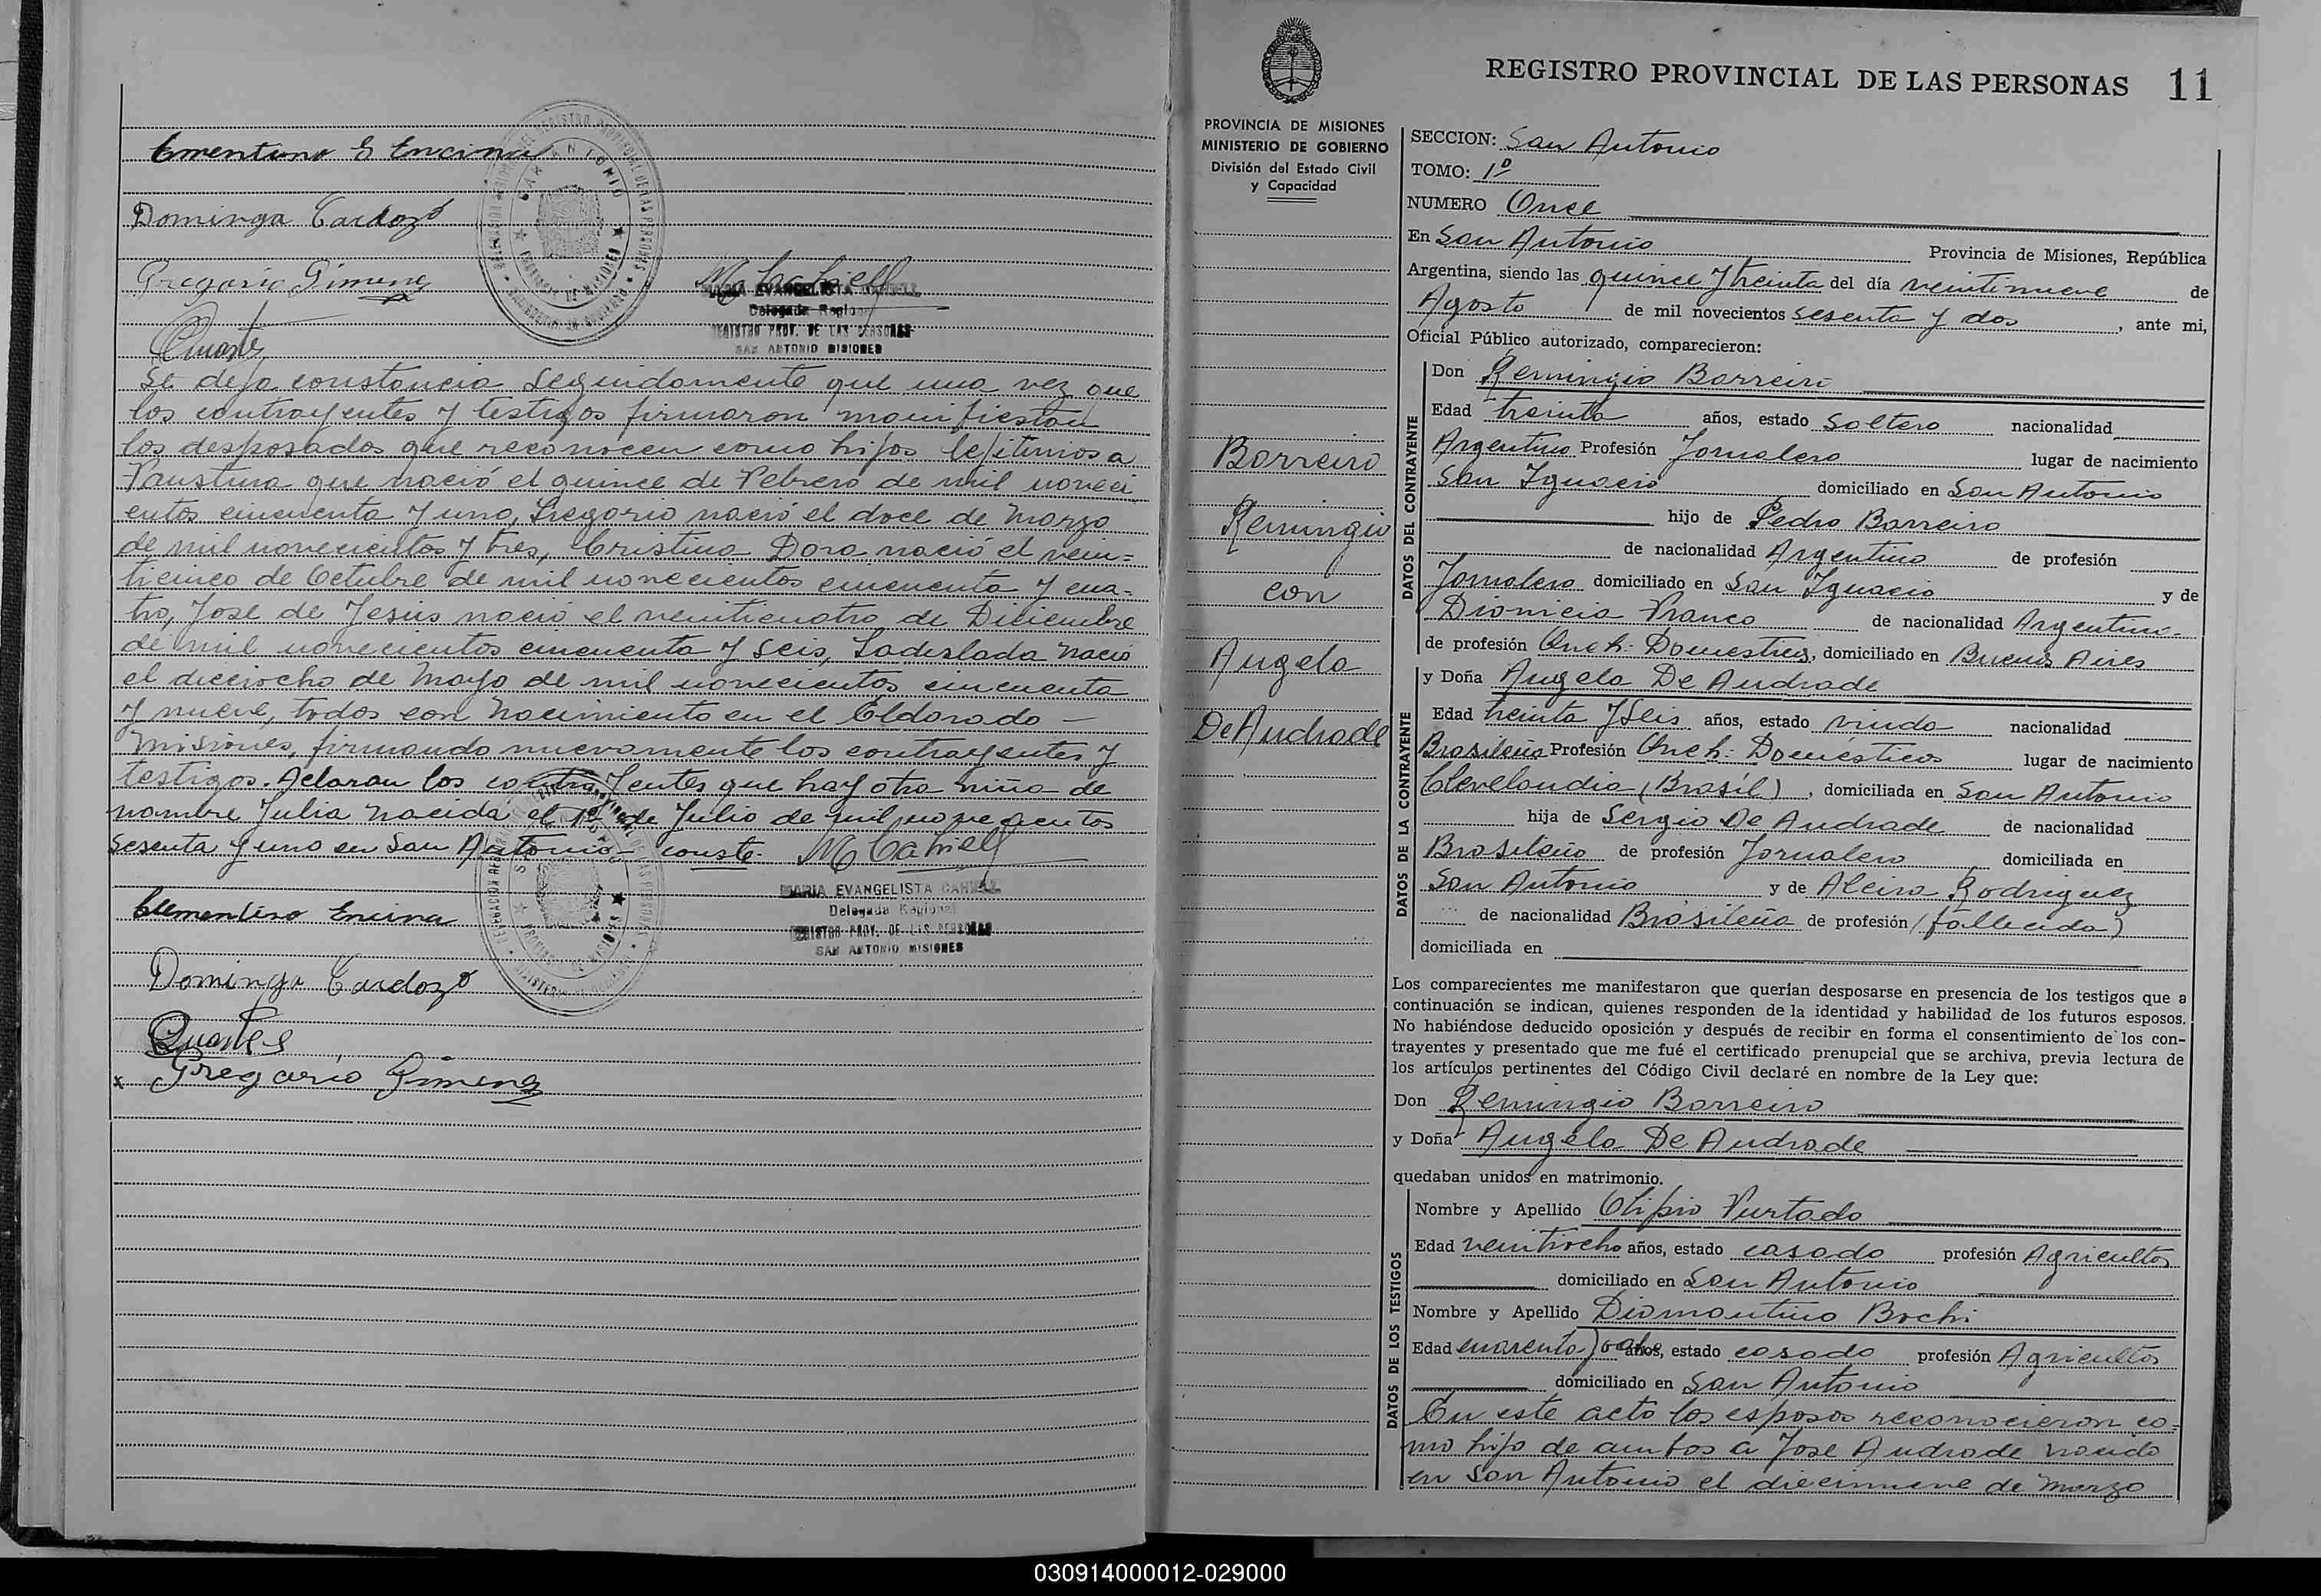 Clementino E Encina
Dominga Cardozo
Gregorio Gimenez
MARIA EVANGELISTA
Delegada Regional
REGISTRO PROV. DE LAS PERSONAS
SAN ANTONIO MISIONES
Se deja constancia seguidamente que una vez que
los contrayentes y testigos firmaron manifiestan
los desposados que reconocen como hijos lejitimos a
Faustina que nació el quince de Febrero de mil noveci
entos cincuenta y uno, Gregorio nació el doce de Marzo
de mil novecientos y tres, Cristina Dora nació el vein=
ticinco de Octubre de mil novecientos cincuenta y cua-
tro, Jose de Jesús nació el veinticuatro de Diciembre
de mil novecientos cincuenta y seis, Ladislada nació
el dieciocho de Mayo de mil novecientos cincuenta
y nueve, todos con nacimiento en el Eldorado —
Misiones, firmando nuevamente los contrayentes y
testigos. Aclaran los contrayentes que hay otra niña de
nombre Julia nacida el 1º de Julio de mil novecientos
sesenta y uno en San Antonio- conste.
MARIA EVANGELISTA
Delegada Regional
REGISTRO PROV. DE LAS PERSONAS
SAN ANTONIO MISIONES
Clementino Encina
Dominga Cardozo
Duartes
x Gregorio Gimenez
REGISTRO PROVINCIAL DE LAS PERSONAS 11
PROVINCIA DE MISIONES
MINISTERIO DE GOBIERNO
División del Estado Civil
y Capacidad
Borreiro
Remingio
con
Angela
De Andrade
SECCION: San Antonio
TOMO: 1º
NUMERO Once
En San Antonio Provincia de Misiones, República
Argentina, siendo las quince y treinta del día veintinueve de
Agosto de mil novecientos sesenta y dos, ante mi,
Oficial Público autorizado, comparecieron:
DATOS DEL CONTRAYENTE
Don Remingio Barreiro
Edad treinta años, estado Soltero nacionalidad
Argentino Profesión Jornalero lugar de nacimiento
San Ignacio domiciliado en San Antonio
hijo de Pedro Barreiro
de nacionalidad Argentino de profesión
Jornalero domiciliado en San Ignacio y de
Dionicia Franco de nacionalidad Argentina-
de profesión Queh: Domesticos, domiciliado en Buenos Aires
DATOS DE LA CONTRAYENTE
y Doña Angela De Andrade
Edad treinta y seis años, estado viuda nacionalidad
Brasileña Profesión Queh: Domésticos lugar de nacimiento
Clevelandia (Brasil), domiciliada en San Antonio
hija de Sergio De Andrade de nacionalidad
Brasileño de profesión Jornalero, domiciliada en
San Antonio y de Alcira Rodriguez
de nacionalidad Brasileña de profesión (fallecida)
domiciliada en
Los comparecientes me manifestaron que querían desposarse en presencia de los testigos que a
continuación se indican, quienes responden de la identidad y habilidad de los futuros esposos.
No habiéndose deducido oposición y después de recibir en forma el consentimiento de los con-
trayentes y presentado que me fué el certificado prenupcial que se archiva, previa lectura de
los artículos pertinentes del Código Civil declaré en nombre de la Ley que:
Don Remingio Borreiro
y Doña Angela De Andrade
quedaban unidos en matrimonio.
DATOS DE LOS TESTIGOS
Nombre y Apellido Olipio Furtado
Edad veintiocho años, estado casado profesión Agricultor
domiciliado en San Antonio
Nombre y Apellido Diamantino Bochi
Edad cuarenta y ocho años, estado casado profesión Agricultor
domiciliado en San Antonio
En este acto los esposos reconocieron co=
mo hijo de ambos a Jose Andrade nacido
en San Antonio el diecinueve de Marzo
030914000012-029000